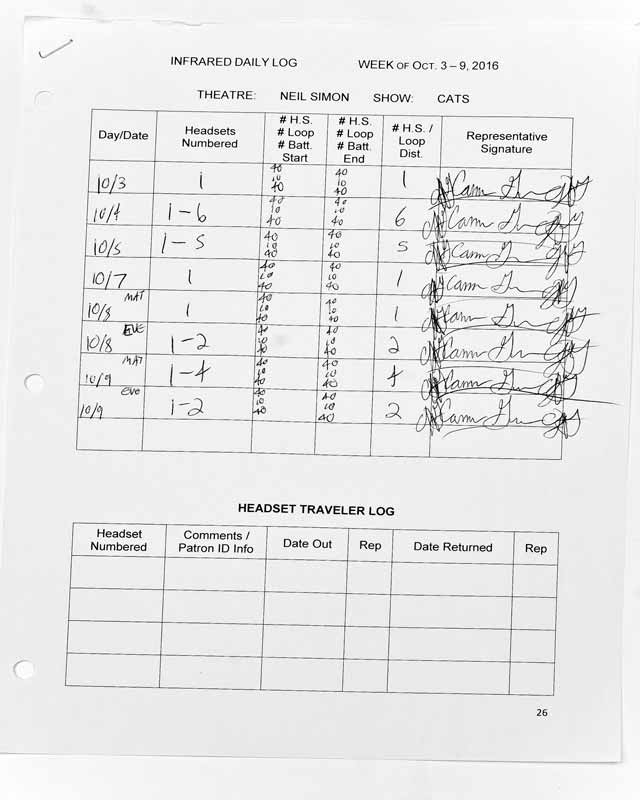 INFRARED DAILY LOG WEEK OF OCT. 3 – 9, 2016
THEATRE: NEIL SIMON SHOW: CATS
Day/Date Headsets Numbered # H.S. # Loop # Batt. Start # H.S. # Loop # Batt. End # H.S. / Loop Dist. Representative Signature
10/3 1 40 10 40 40 10 40 1
10/4 1-6 40 10 40 40 10 40 6
10/5 1-5 40 10 40 40 10 40 5
10/7 1 40 10 40 40 10 40 1
10/8 MAT 1 40 10 40 40 10 40 1
10/8 EVE 1-2 40 10 40 40 10 40 2
10/9 MAT 1-4 40 10 40 40 10 40 4
10/9 eve 1-2 40 10 40 40 10 40 2
HEADSET TRAVELER LOG
Headset Numbered Comments / Patron ID Info Date Out Rep Date Returned Rep
26